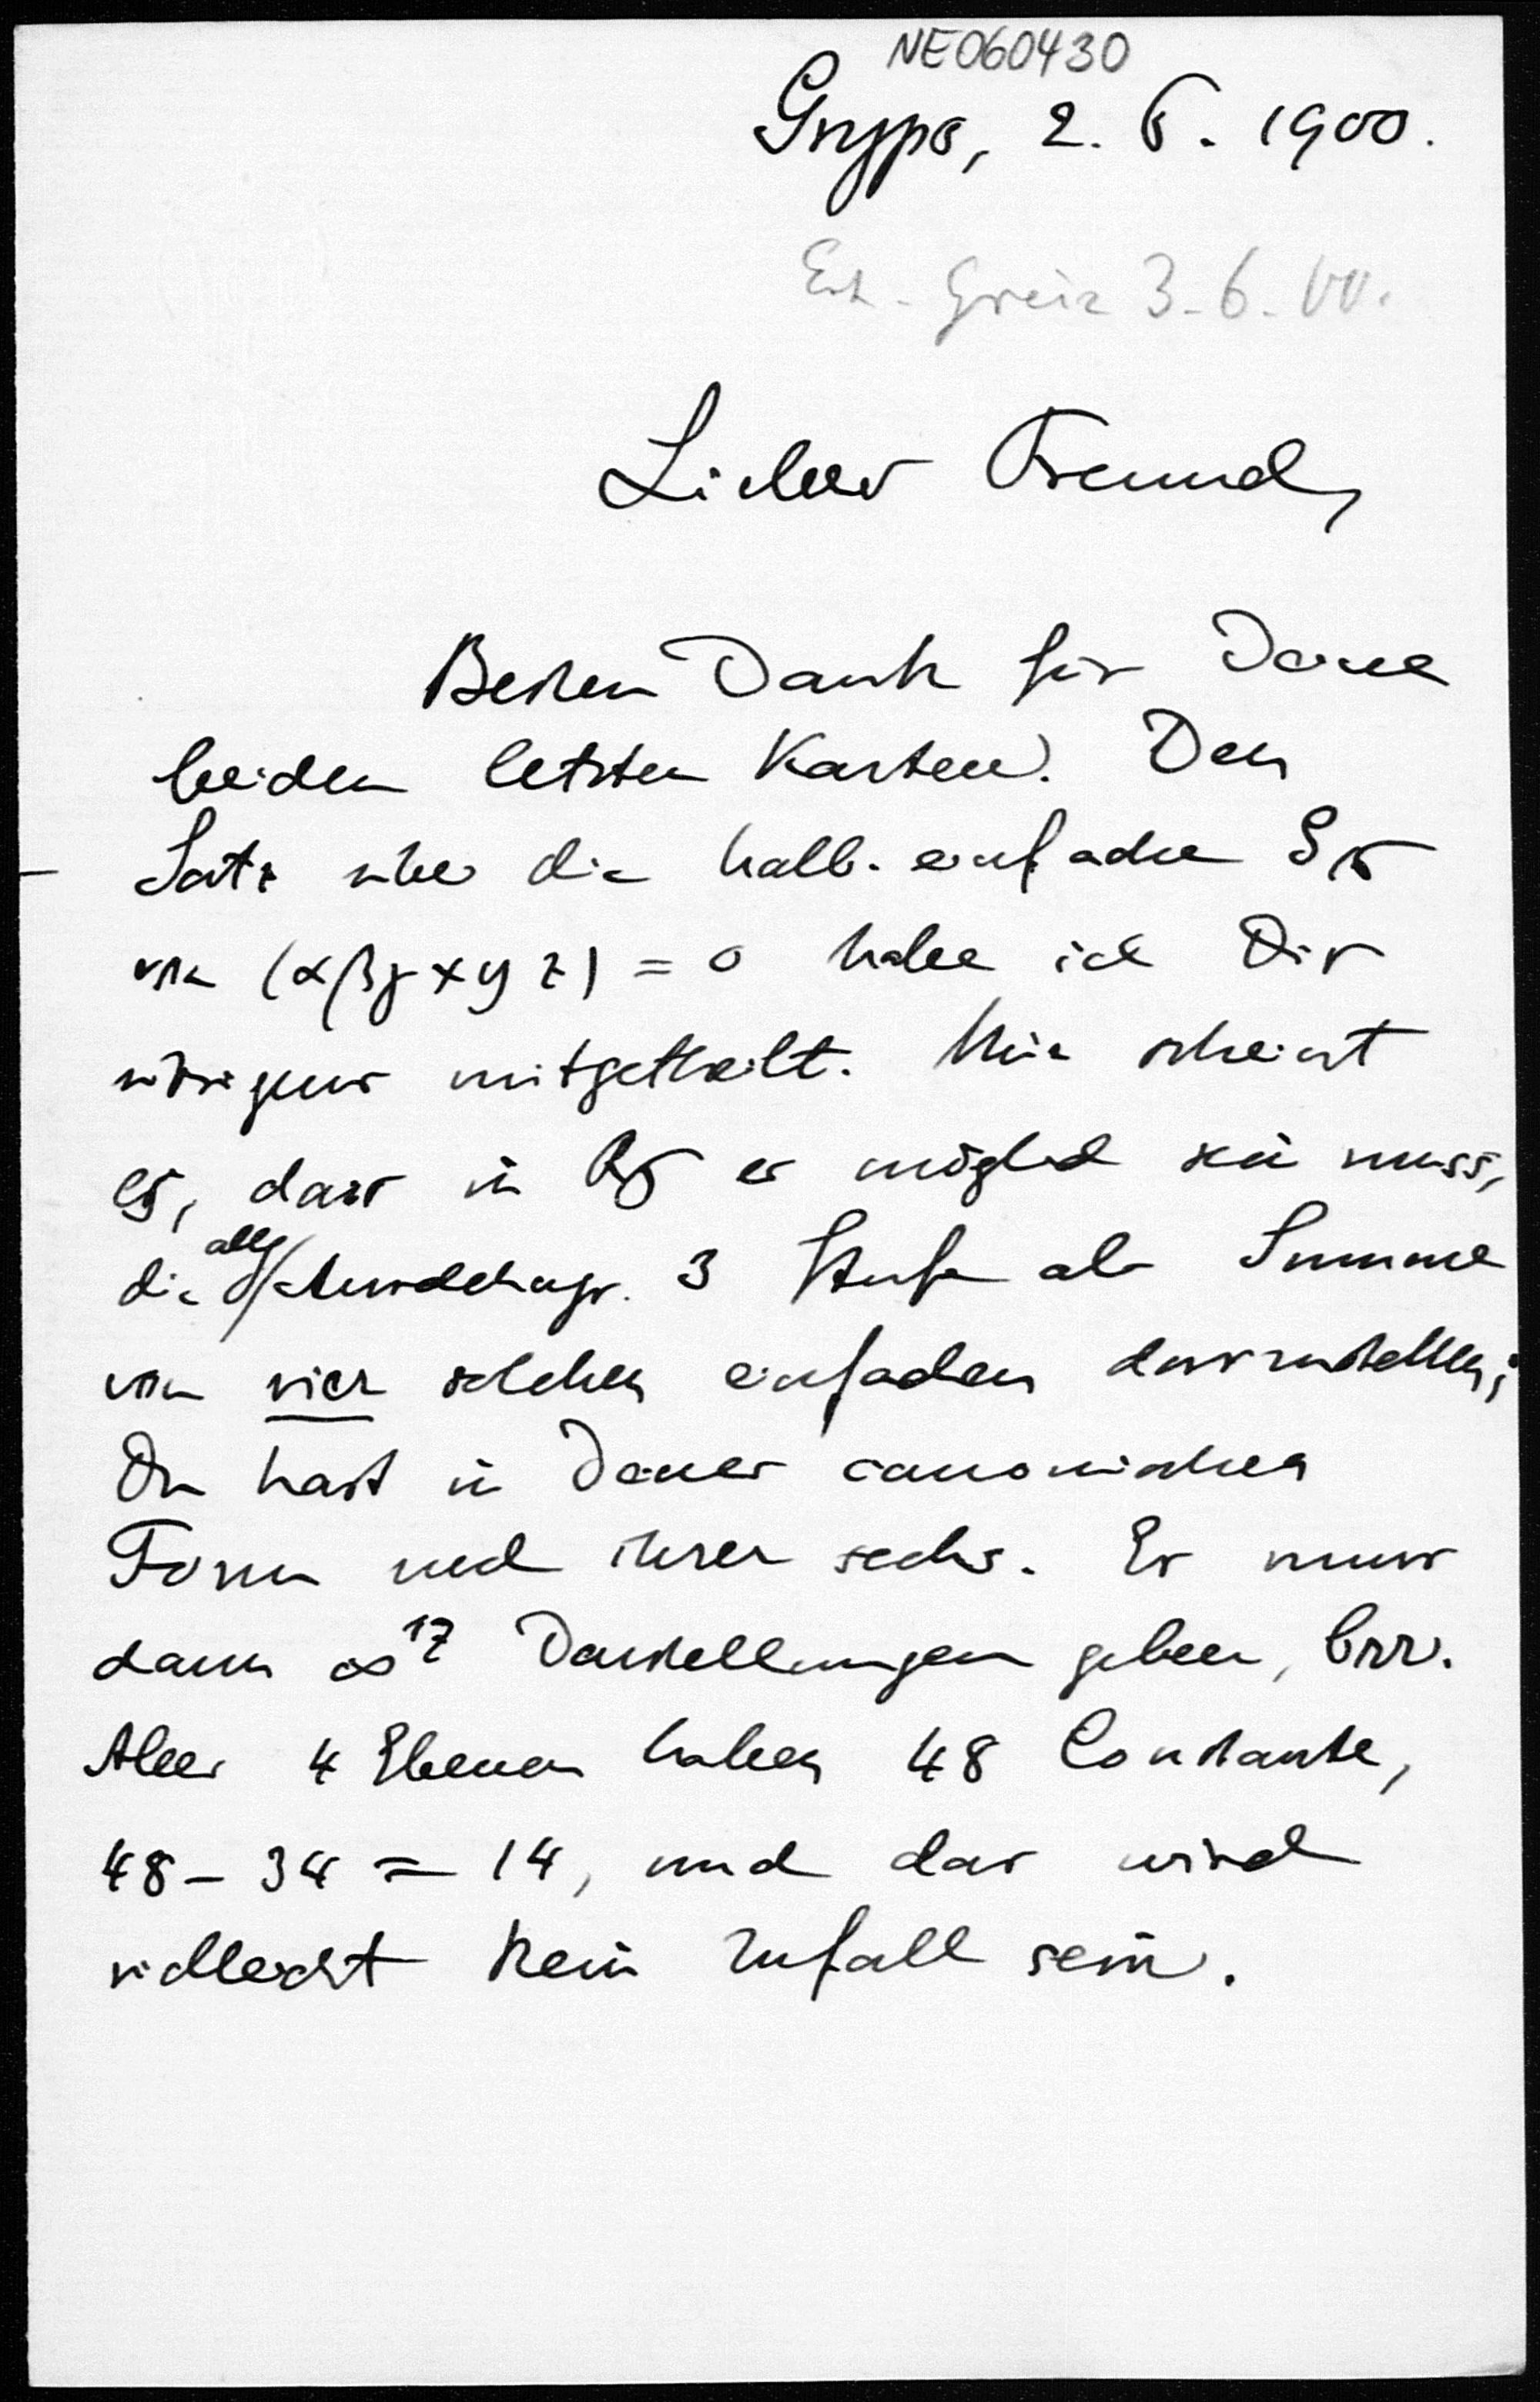 NE060430
Gryps, 2. 6. 1900.
Erh. Greiz 3.6.00.
Lieber Freund,
Besten Dank für Deine
beiden letzten Karten. Den
Satz über die halb-einfachen
von (αβγxyz) = 0 habe ich Dir
übrigens mitgetheilt. Mir scheint
es, dass in R5 es möglich sein muss,
die allg 3 Stufe als Summe
von vier solchen einfachen darzustellen;
Du hast in Deiner canonischen
Form und ihrer sechs. Es muss
dann ∞17 Darstellungen geben, brr.
Aber 4 Ebenen haben 48 Constante,
48 - 34 = 14, und das wird
vielleicht kein Zufall sein.